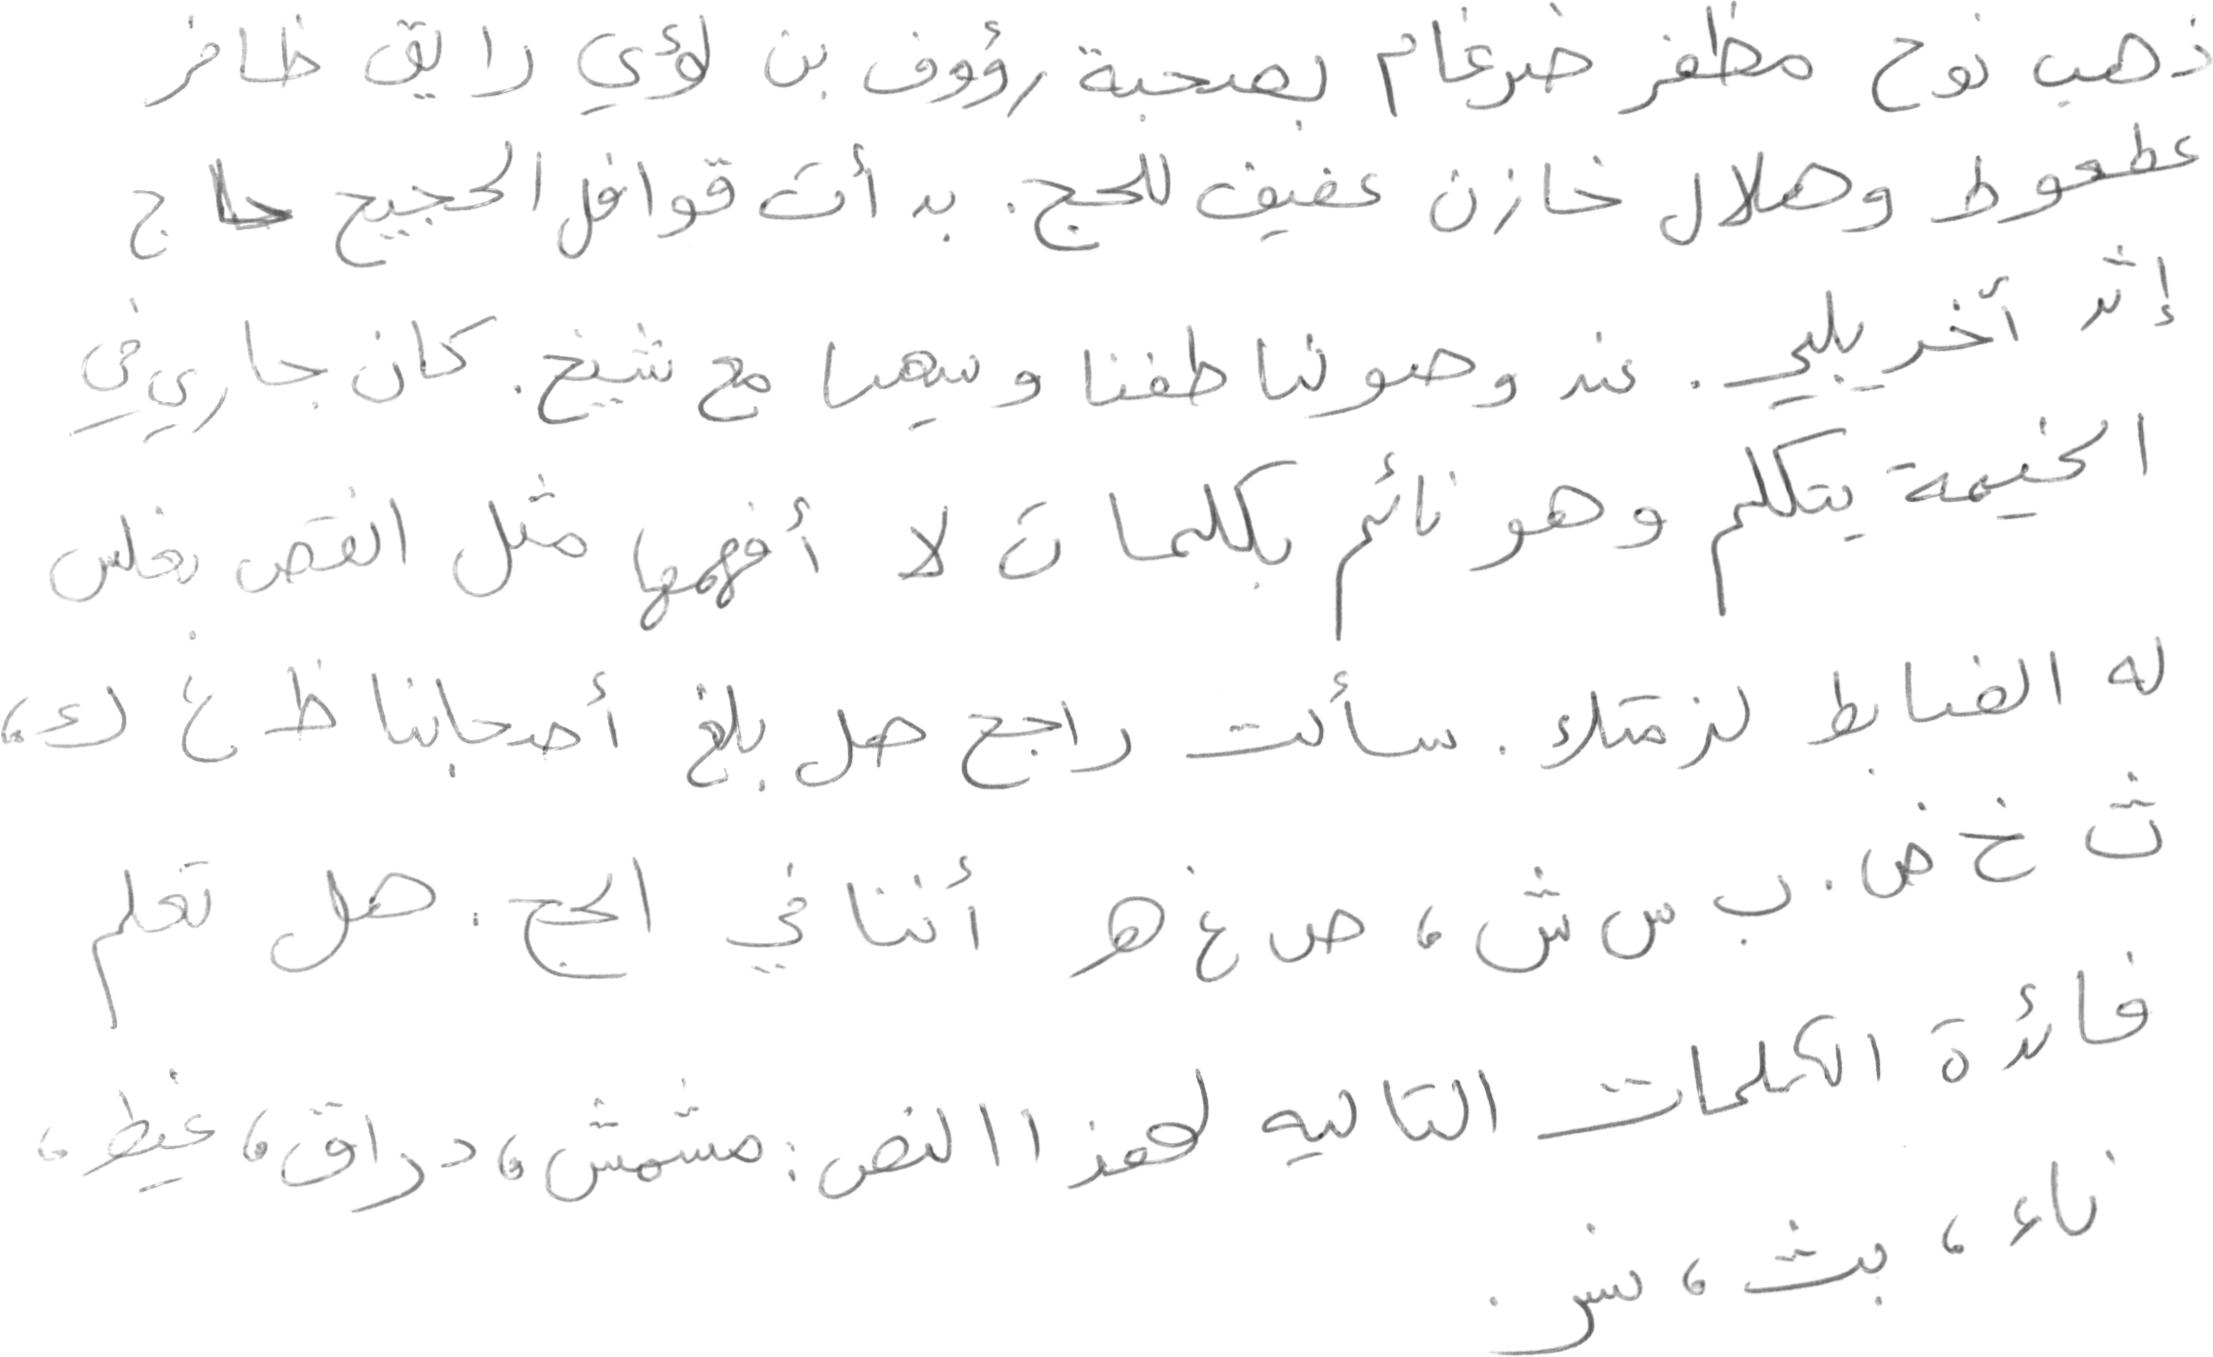 ذهب نوح مظفر ضرغام بصحبة رؤوف بن لؤي رايق ظافر
عطعوط وهلال خازن عفيف للحج. بدأت قوافل الحجيج حاج
إثر آخر يلبي. عند وصولنا طفنا وسهيا مع شيخ. كان جاري في
الخيمة يتكلم وهو نائم بكلمات لا أفهمها مثل القص بغلس
له الضابط لزمتك. سألت راجح هل بلغ أصحابنا ظ غ ك،
ث خ ض. ب س ش، ص غ ه أننا في الحج. هل تعلم
فائدة الكلمات التاليه لهذا النص: مشمش، دراق، غيظ،
ناء، بث، نسر.